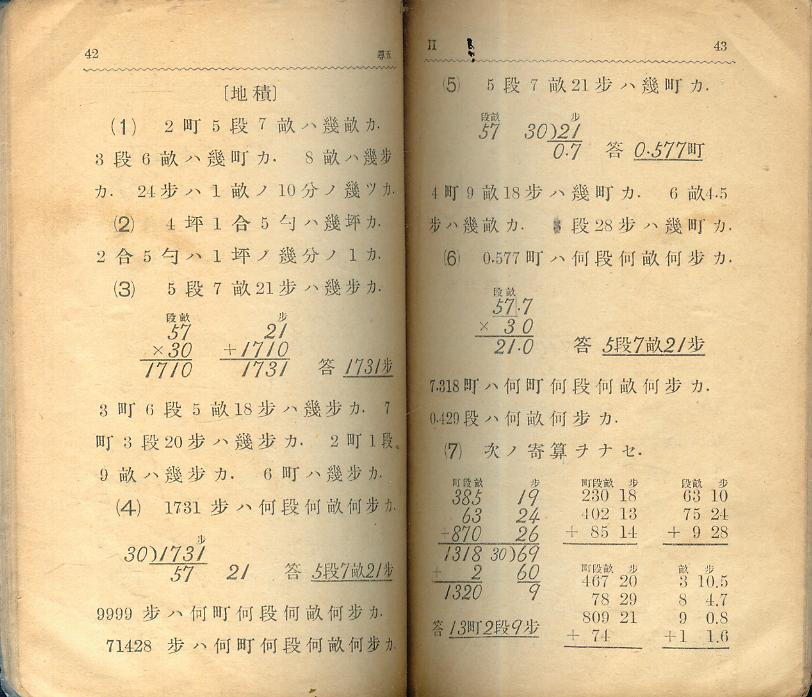 42 尋五
[地積]
(1) 2町5段7畝ハ幾畝カ.
3段6畝ハ幾町カ. 8畝ハ幾步
カ. 24步ハ1畝ノ10分ノ幾ツカ.
(2) 4坪1合5勺ハ幾坪カ.
2合5勺ハ1坪ノ幾分ノ1カ.
(3) 5段7畝21步ハ幾步カ.
段畝 步
57 21
×30 +1710
1710 1731 答 1731步
3町6段5畝18步ハ幾步カ. 7
町3段20步ハ幾步カ. 2町1段
9畝ハ幾步カ. 6町ハ幾步カ.
(4) 1731步ハ何段何畝何步カ.
步
30)1731
57 21 答 5段7畝21步
9999步ハ何町何段何畝何步カ.
71428步ハ何町何段何畝何步カ.
II 43
(5) 5段7畝21步ハ幾町カ.
段畝 步
57 30)21
0.7 答 0.577町
4町9畝18步ハ幾町カ. 6畝4.5
步ハ幾畝カ. 段28步ハ幾町カ.
(6) 0.577町ハ何段何畝何步カ.
段畝
57.7
× 30
21.0 答 5段7畝21步
7.318町ハ何町何段何畝何步カ.
0.429段ハ何畝何步カ.
(7) 次ノ寄算ヲナセ.
町段畝 步 町段畝 步 段畝 步
385 19 230 18 63 10
63 24 402 13 75 24
+870 26 + 85 14 + 9 28
1318 30)69
+ 2 60
1320 9
答 13町2段9步
町段畝 步 畝 步
467 20 3 10.5
78 29 8 4.7
809 21 9 0.8
+ 74 +1 1.6